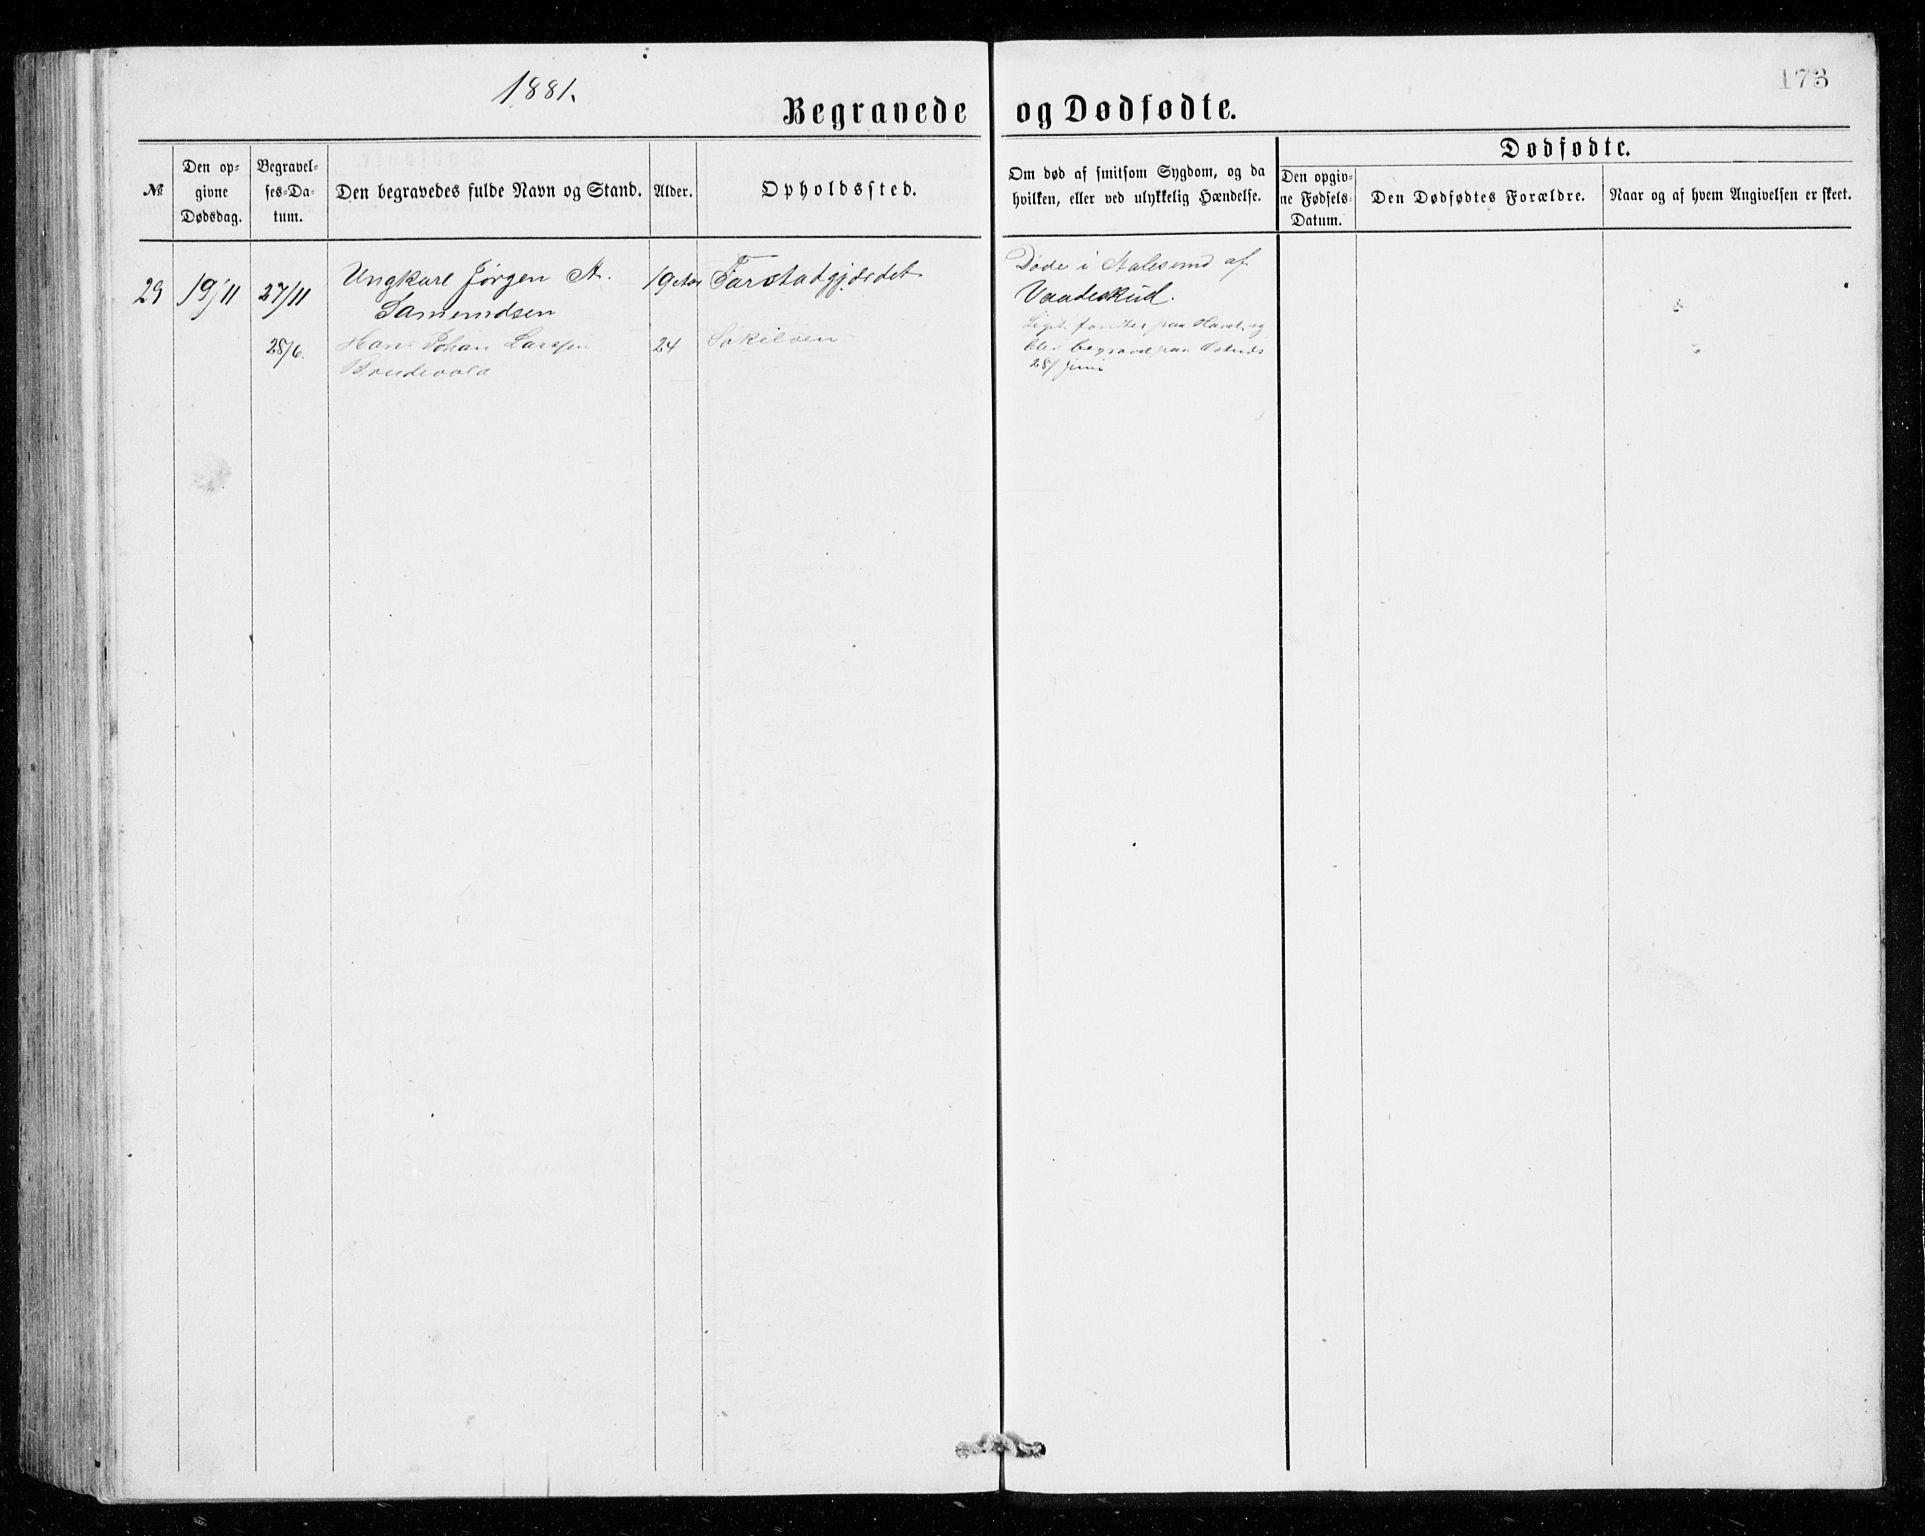 1881.
173
Begravede og Dødfødte.
№
Den op-
givne
Dødsdag.
Begravel-
ses-Da-
tum.
Den begravedes fulde Navn og Stand.
Alder.
Opholdssted.
Om død af smitsom Sygdom, og da
hvilken, eller ved ulykkelig Hændelse.
Dødfødte.
Den opgiv-
ne Fødsels-
Datum.
Den Dødfødtes Forældre.
Naar og af hvem Angivelsen er skeet.
29 19/11 27/11 Ungkarl Jørgen A.
Samundsen
19 Farstadgjærdet
Døde i Aalesund af
Vaadeskud.
28/6. Hans Johan Larssen
Brudevold
24 Søkilven
Liget fandtes paa Havet og
blev begravet paa
28/ Juni